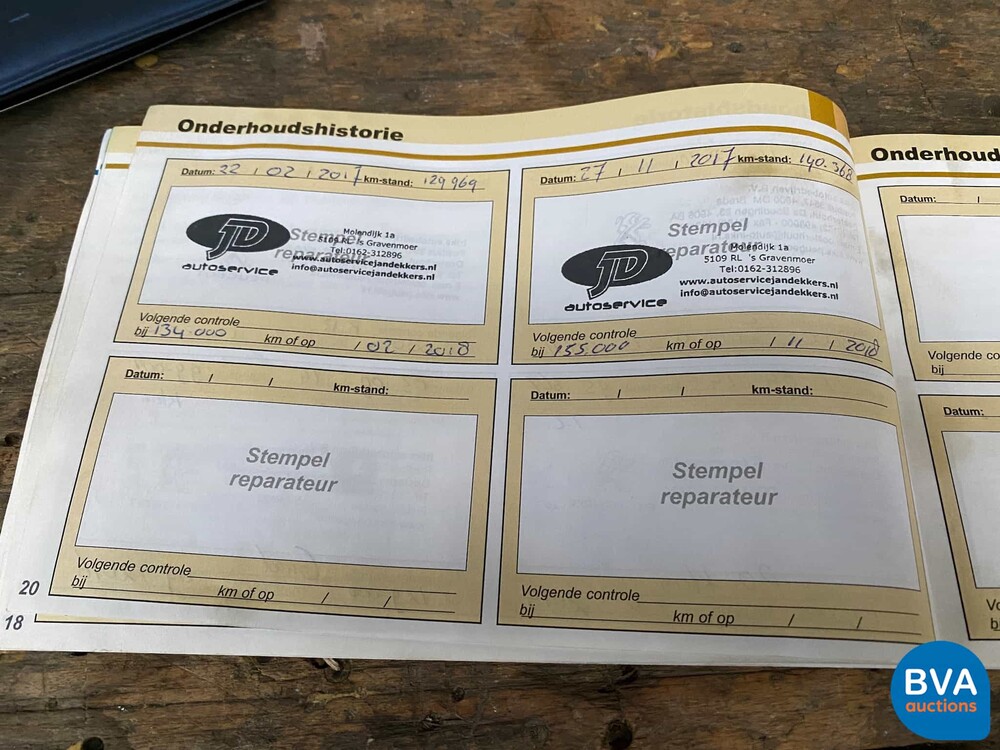 Onderhoudshistorie
Datum: 22 / 02 / 2017 km-stand: 129969
Stempel
reparateur
JD
autoservice
Molendijk 1a
5109 RL 's Gravenmoer
Tel:0162-312896
www.autoservicejandekkers.nl
info@autoservicejandekkers.nl
Volgende controle
bij 134.000 km of op / 02 / 2018
Datum: 27 / 11 / 2017 km-stand: 140.368
Stempel
reparateur
JD
autoservice
Molendijk 1a
5109 RL 's Gravenmoer
Tel:0162-312896
www.autoservicejandekkers.nl
info@autoservicejandekkers.nl
Volgende controle
bij 155.000 km of op / 11 / 2018
Datum: / / km-stand:
Stempel
reparateur
Volgende controle
bij km of op / /
Datum: / / km-stand:
Stempel
reparateur
Volgende controle
bij km of op / /
20
18
Onderhoud
Datum: /
Volgende co
bij
Datum:
Vo
b
BVA
auctions